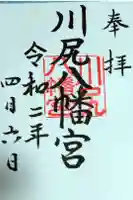 奉拝
川尻八幡宮
令和二年
四月六日